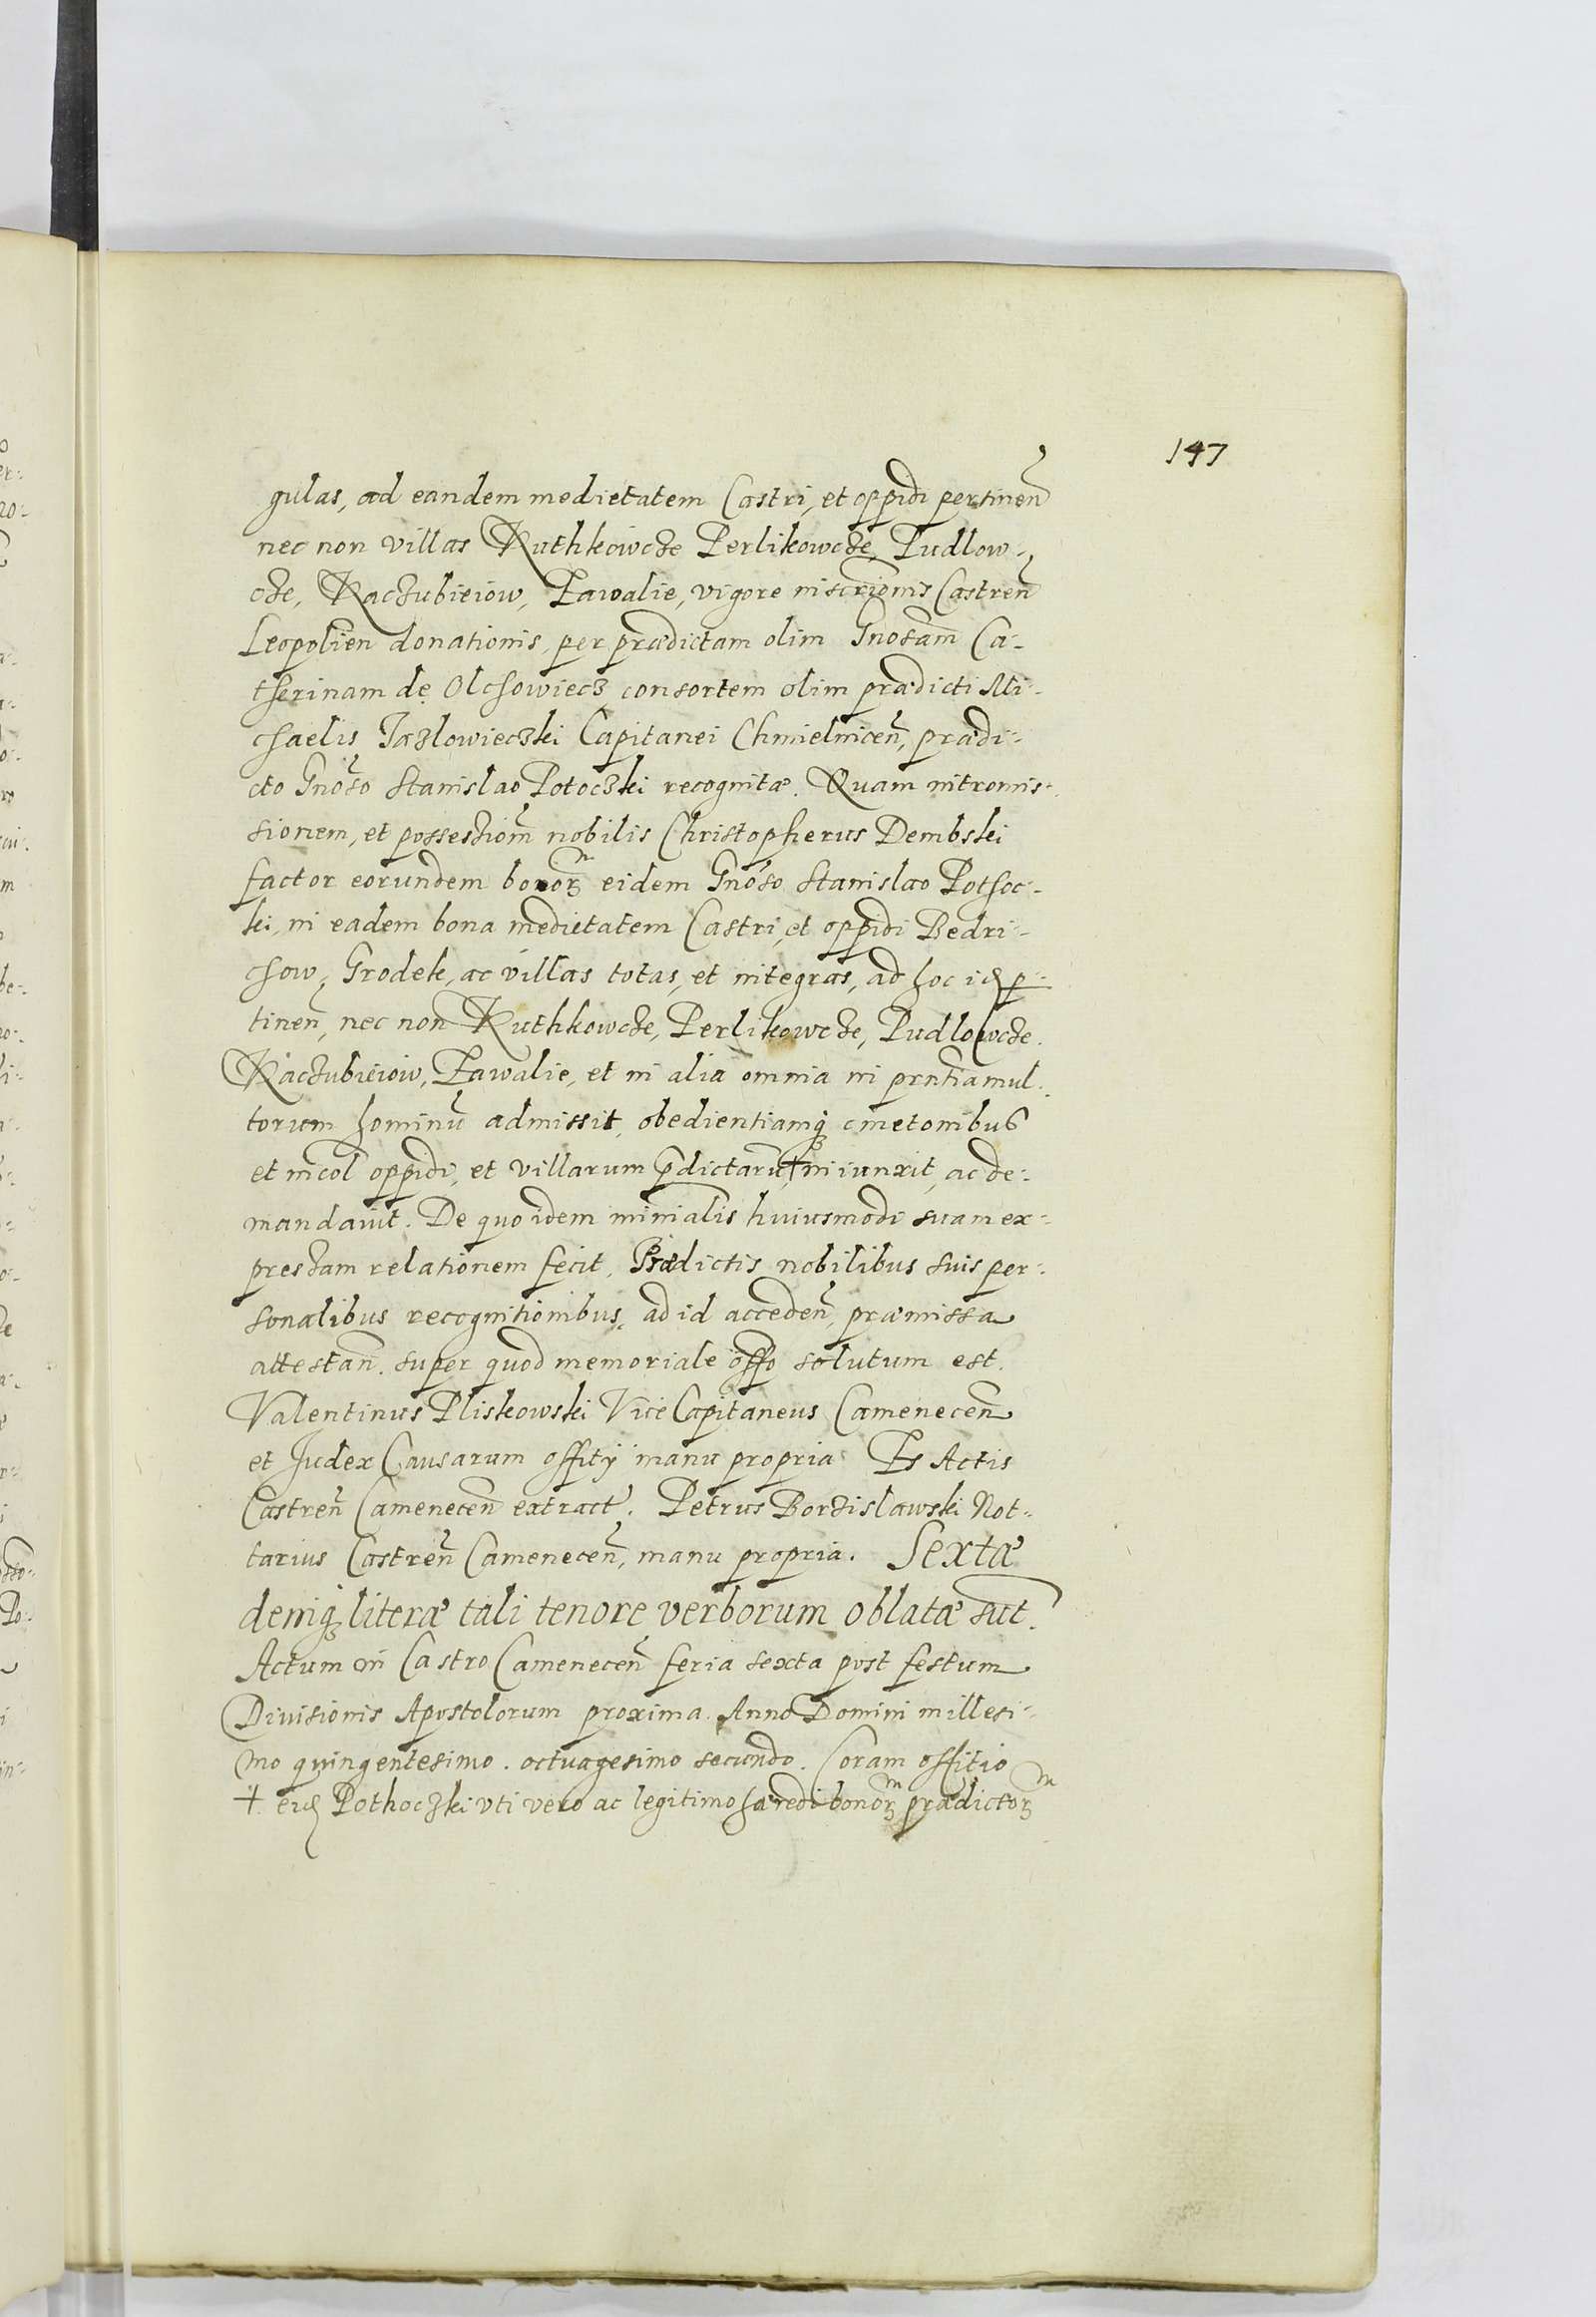 147
gulas, ad eandem medietatem Castri, et oppidi pertinen̄
nec non villas Ruthkowcze Perlikowcze, Pudlow-
cze, Raczubieiow, Zawalie, vigore inscriōnis Castren̄
Leopolien donationis, per prædictam olim Gnosam Ca-
therinam de Olchowiecz consortem olim prædicti Mi-
chaelis Jazlowieczki Capitanei Chmielnicen̄, prædi-
cto Gnōso Stanislao Potoczki recognitæ. Quam intromis-
sionem, et possessiom̄ nobilis Christopherus Dembski
factor eorundem bonor̄ eidem Gnōso Stanislao Pothoc-
ki, in eadem bona medietatem Castri, et oppidi Bedri-
chow, Grodek, ac villas totas, et integras, ad hoc id p-
tinen̄, nec non Ruthkowcze, Perlikowcze, Pudlowcze.
Raczubieiow, Zawalie, et in alia omnia in prntia mul-
torum hominū admissit, obedientiamq₃ cmetonibus
et incol oppidi, et villarum p̄dictarū, † iniunxit, ac de-
mandauit. De quo idem minialis huiusmodi suam ex-
pressam relationem fecit. Prædictis nobilibus suis per-
sonalibus recognitionibus, ad id acceden̄, præmissa
attestan̄. super quod memoriale offō solutum est.
Valentinus Pliskowski Vice Capitaneus Camenecen̄
et Judex Causarum offitij manu propria Ex Actis
Castren̄ Camenecen̄ extract. Petrus Borzislawski Not-
tarius Castren̄ Camenecen̄, manu propria. Sextæ
deniq₃ literæ tali tenore verborum oblatæ sūt.
Actum in Castro Camenecen̄ feria sexta post festum
Diuisionis Apostolorum proxima. Anno Domini millesi-
mo quingentesimo. octuagesimo secundo. Coram offitio
† eid Pothoczki vti vero ac legitimo hæredi bonor̄ prædictor̄